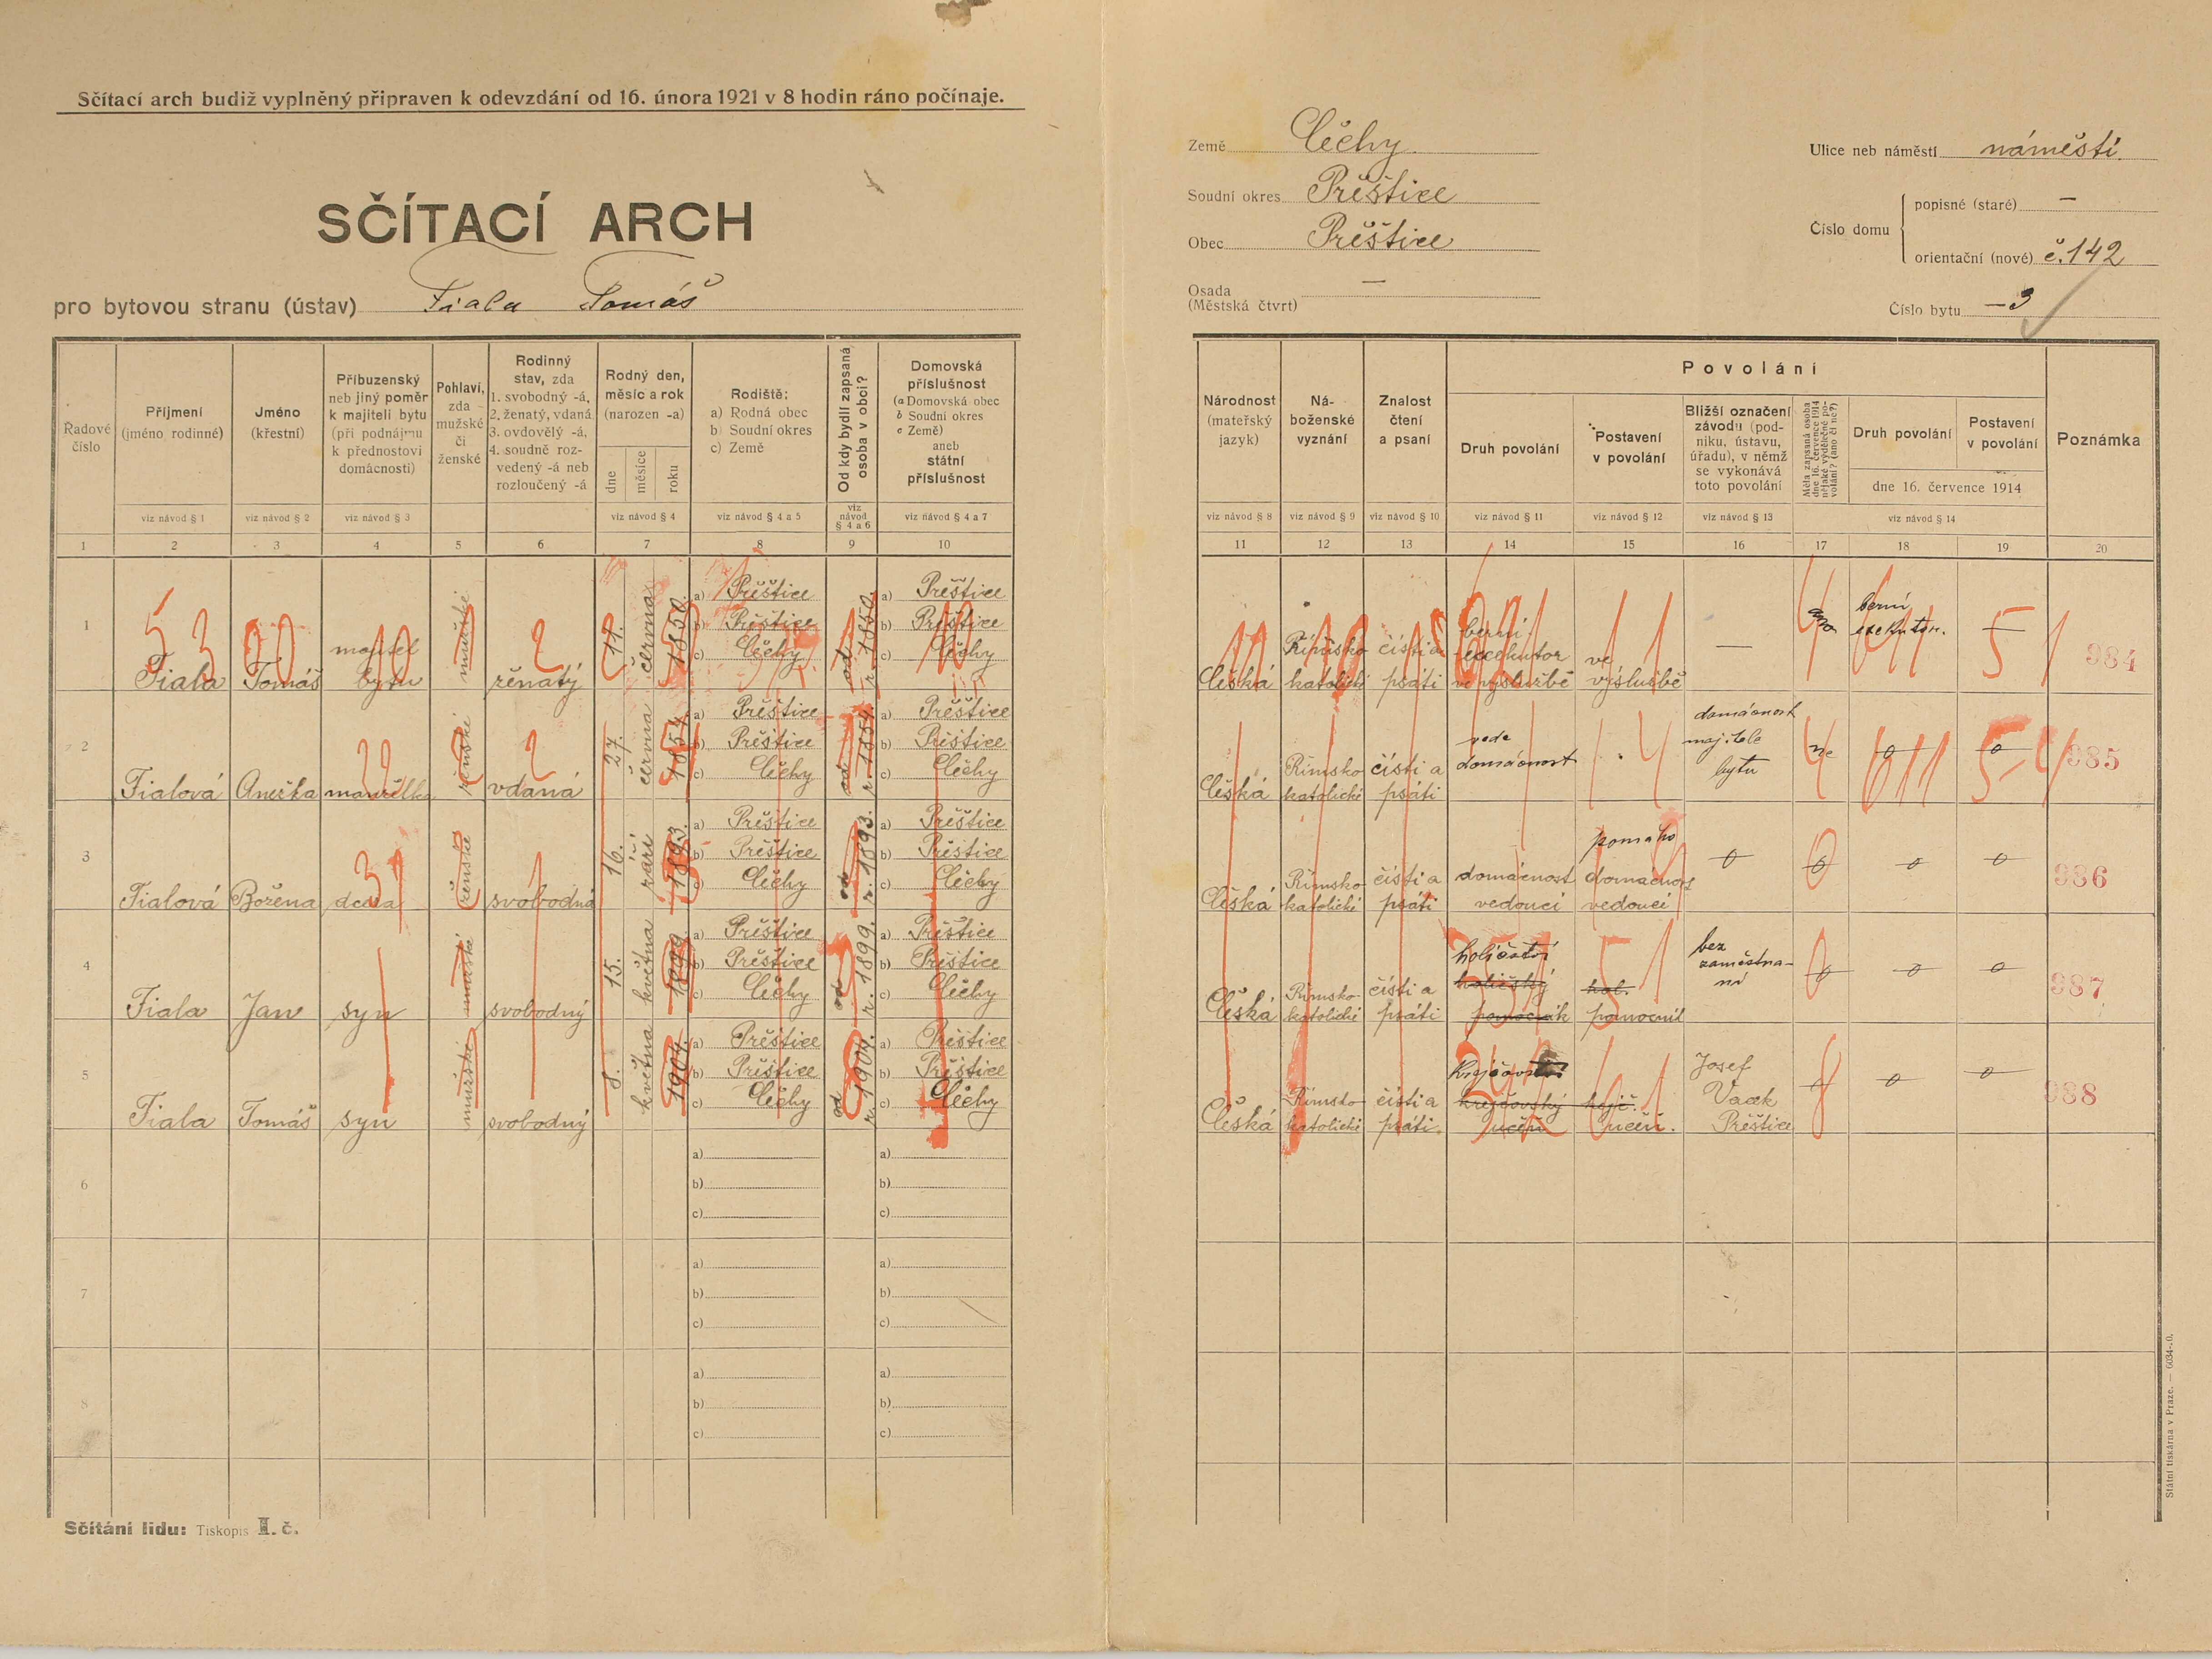 Sčítací arch budiž vyplněný připraven k odevzdání od 16. února 1921 v 8 hodin ráno počínaje.
SČÍTACÍ ARCH
pro bytovou stranu (ústav) Fiala Tomáš
Země Čechy
Soudní okres Přeštice
Obec Přeštice
Osada (Městská čtvrt) —
Ulice neb náměstí náměstí.
Číslo domu
popisné (staré) —
orientační (nové) č. 142
Číslo bytu — 3
Řadové číslo
Příjmení (jméno rodinné)
Jméno (křestní)
Příbuzenský neb jiný poměr k majiteli bytu (při podnájmu k přednostovi domácnosti)
Pohlaví, zda mužské či ženské
Rodinný stav, zda 1. svobodný -á, 2. ženatý, vdaná 3. ovdovělý -á, 4. soudně rozvedený -á neb rozloučený -á
Rodný den, měsíc a rok (narozen -a)
dne měsíce roku
Rodiště: a) Rodná obec b) Soudní okres c) Země
Od kdy bydlí zapsaná osoba v obci?
Domovská příslušnost (a Domovská obec b Soudní okres c Země) aneb státní příslušnost
Národnost (mateřský jazyk)
Náboženské vyznání
Znalost čtení a psaní
Povolání
Druh povolání
Postavení v povolání
Bližší označení závodu (podniku, ústavu, úřadu), v němž se vykonává toto povolání
Měla zapsaná osoba dne 16. července 1914 nějaké výdělečné povolání? (ano či ne?)
Druh povolání
Postavení v povolání
dne 16. července 1914
Poznámka
viz návod § 1 viz návod § 2 viz návod § 3 viz návod § 4 viz návod § 4 a 5 viz návod § 4 a 6 viz návod § 4 a 7
viz návod § 8 viz návod § 9 viz návod § 10 viz návod § 11 viz návod § 12 viz návod § 13 viz návod § 14
1 2 3 4 5 6 7 8 9 10
11 12 13 14 15 16 17 18 19 20
1 Fiala Tomáš majitel bytu mužské ženatý 11. června 1850. a) Přeštice b) Přeštice c) Čechy od r. 1850. a) Přeštice b) Přeštice c) Čechy
Česká Římsko katolické čísti a psáti berní exekutor ve výslužbě ve výslužbě — ano berní exekutor. — 984
2 Fialová Anežka manželka ženské vdaná 27. června 1854. a) Přeštice b) Přeštice c) Čechy od r. 1854. a) Přeštice b) Přeštice c) Čechy
Česká Římsko katolické čísti a psáti vede domácnost domácnost majitele bytu ne 0 0 985
3 Fialová Božena dcera ženské svobodná 16. září 1893. a) Přeštice b) Přeštice c) Čechy od r. 1893. a) Přeštice b) Přeštice c) Čechy
Česká Římsko katolické čísti a psáti domácnost vedoucí pomáhá domácnost vedoucí 0 0 0 0 986
4 Fiala Jan syn mužské svobodný 15. května 1899. a) Přeštice b) Přeštice c) Čechy od r. 1899. a) Přeštice b) Přeštice c) Čechy
Česká Římsko katolické čísti a psáti holičství holičský pomocník hol. pomocník bez zaměstnaní 0 0 0 987
5 Fiala Tomáš syn mužské svobodný 8. května 1904. a) Přeštice b) Přeštice c) Čechy od r. 1904. a) Přeštice b) Přeštice c) Čechy
Česká Římsko katolické čísti a psáti. krejčovský učeň krejč. učeň. Josef Vacek Přeštice 0 0 0 988
6 a) b) c) a) b) c)
7 a) b) c) a) b) c)
8 a) b) c) a) b) c)
Sčítání lidu: Tiskopis I. č.
Státní tiskárna v Praze. — 6034-20.